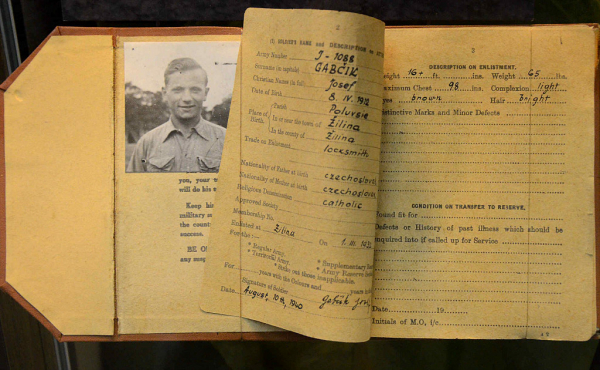 you, your
will do his
Keep
military
the count
success.
BE
any
2
(I) SOLDIER'S NAME and DESCRIPTION on
Army Number J-1088
Surname (in capitals) GABČÍK
Christian Names (in full) Josef
Date of Birth 8. IV. 1912
Place of Birth.
Parish Poluvsie
In or near the town of Žilina
In the county of Žilina
Trade on Enlistment locksmith
Nationality of Father at birth czechoslovak
Nationality of Mother at birth czechoslovak
Religious Denomination catholic
Approved Society
Membership No.
Enlisted at Žilina On
For the :—
* Regular Army.
* Supplementary
* Territorial Army.
* Army Reserve
* Strike out those inapplicable.
For years with the Colours and years in
Signature of Soldier Gabčík
Date August, 10th, 1940
3
DESCRIPTION ON ENLISTMENT.
Height ft. ins. Weight 65 lbs.
Maximum Chest 98 ins. Complexion light
Eyes brown Hair bright
Distinctive Marks and Minor Defects
CONDITION ON TRANSFER TO RESERVE.
Found fit for
Defects or History of past illness which should be
enquired into if called up for Service
Date 19
Initials of M.O. i/c